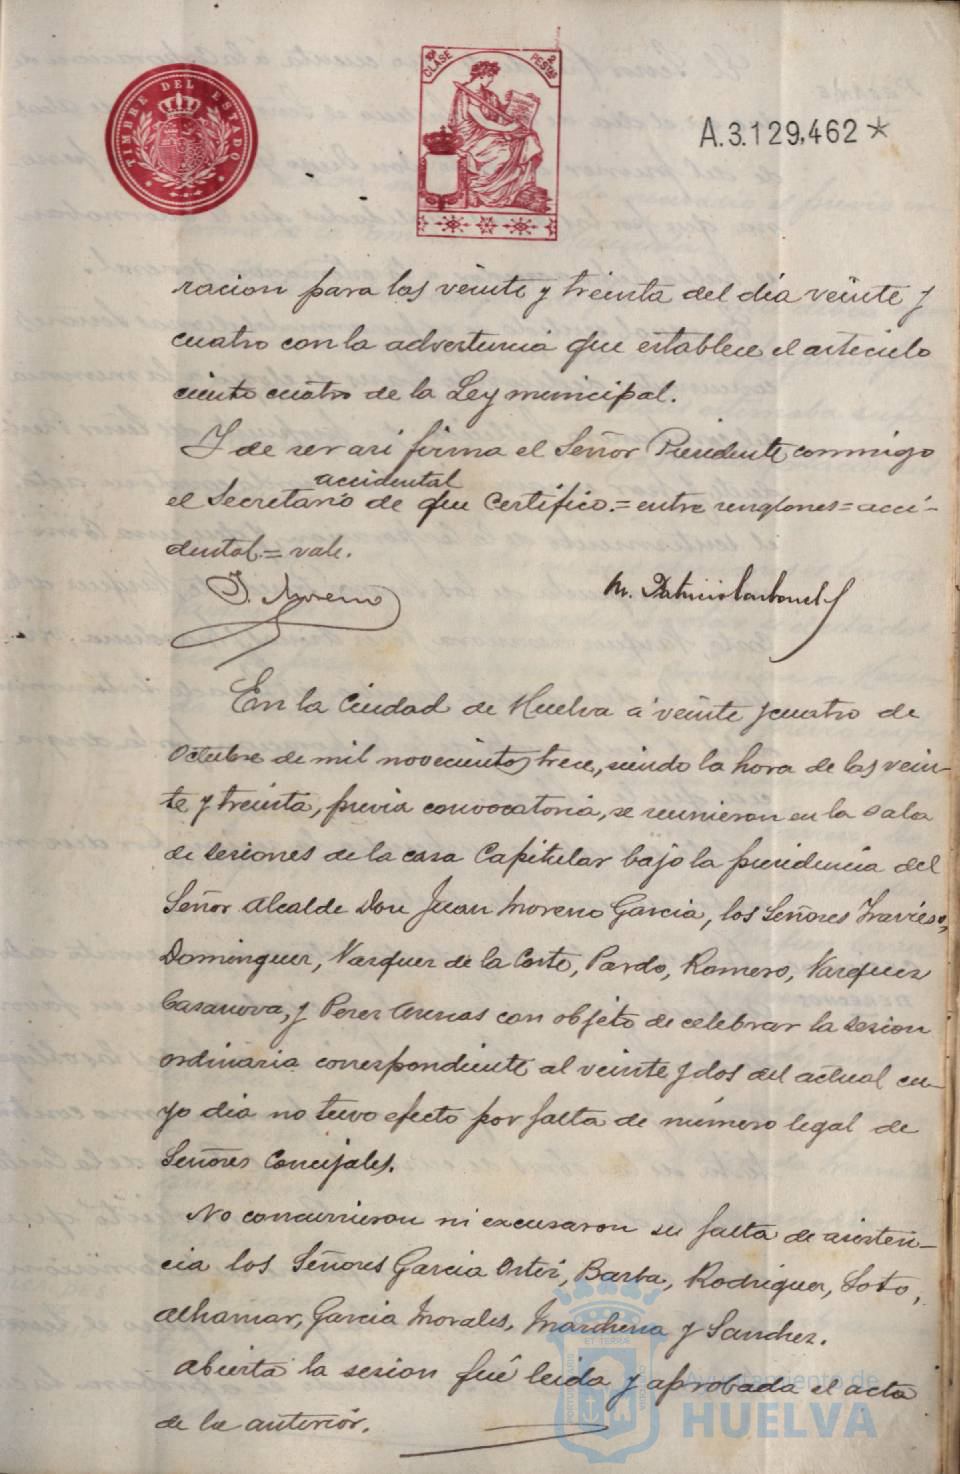 TIMBRE DEL ESTADO
10ª CLASE 2 PESTAS
A.3.129,462*
racion para las veinte y treinta del dia veinte y
cuatro con la advertencia que establece el articulo
ciento cuatro de la Ley municipal.
Y de ser asi firma el Señor Presidente conmigo
accidental
el Secretario de que certifico.=entre renglones=acci-
dental.=vale.
J. Moreno
M. Patricio Carbonell
En la Ciudad de Huelva á veinte y cuatro de
Octubre de mil novecientos trece, siendo la hora de las vein-
te y treinta, previa convocatoria, se reunieron en la Sala
de Sesiones de la casa Capitular bajo la presidencia del
Señor Alcalde Don Juan Moreno Garcia, los Señores Travieso,
Dominguez, Vazquez de la Corte, Pardo, Romero, Vazquez
Casanova, y Perez Arenas con objeto de celebrar la sesion
ordinaria correspondiente al veinte y dos del actual cu-
yo dia no tuvo efecto por falta de número legal de
Señores Concejales.
No concurrieron ni excusaron su falta de asisten-
cia los Señores Garcia Ortiz, Barba, Rodriguez, Soto,
Alhamar, Garcia Morales, Marchena y Sanchez.
Abierta la sesion fué leida y aprobada el acta
de la anterior.
Ayuntamiento de
HUELVA